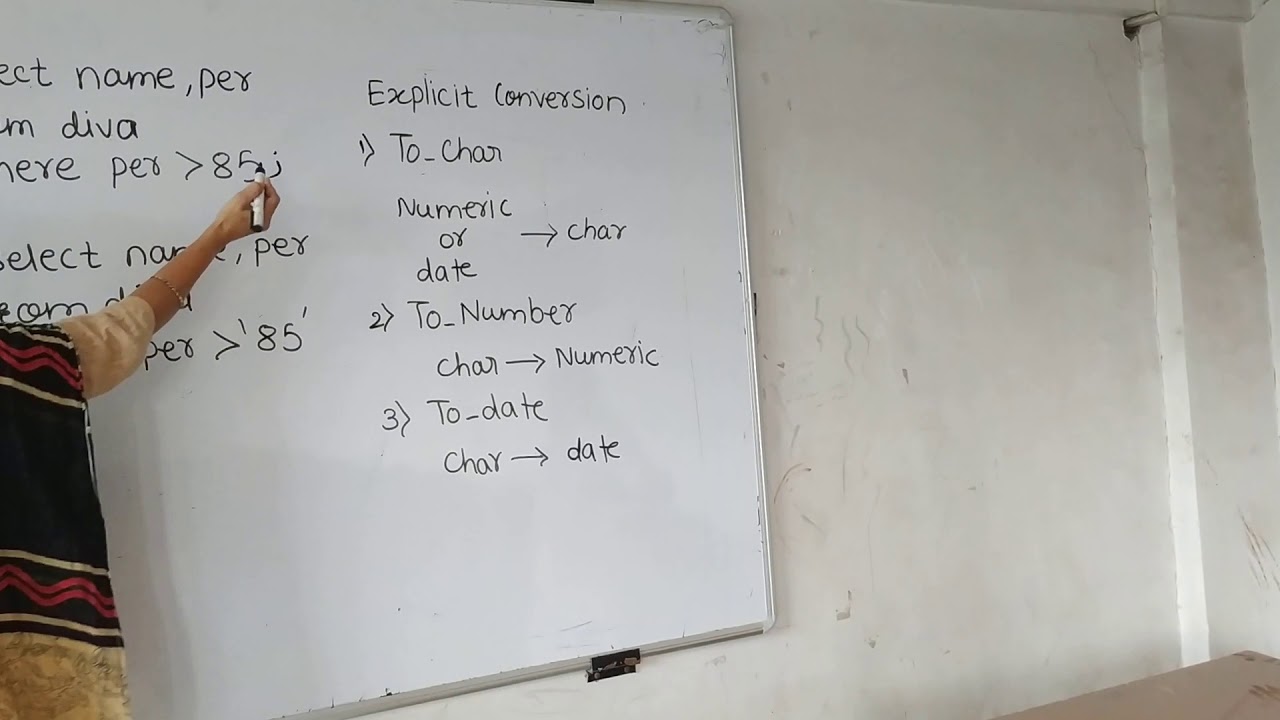 ect name, per
m diva
here per > 85;
select name, per
per > '85'
Explicit Conversion
1) To_Char
Numeric
or → char
date
2) To_Number
char → Numeric
3) To_date
char → date